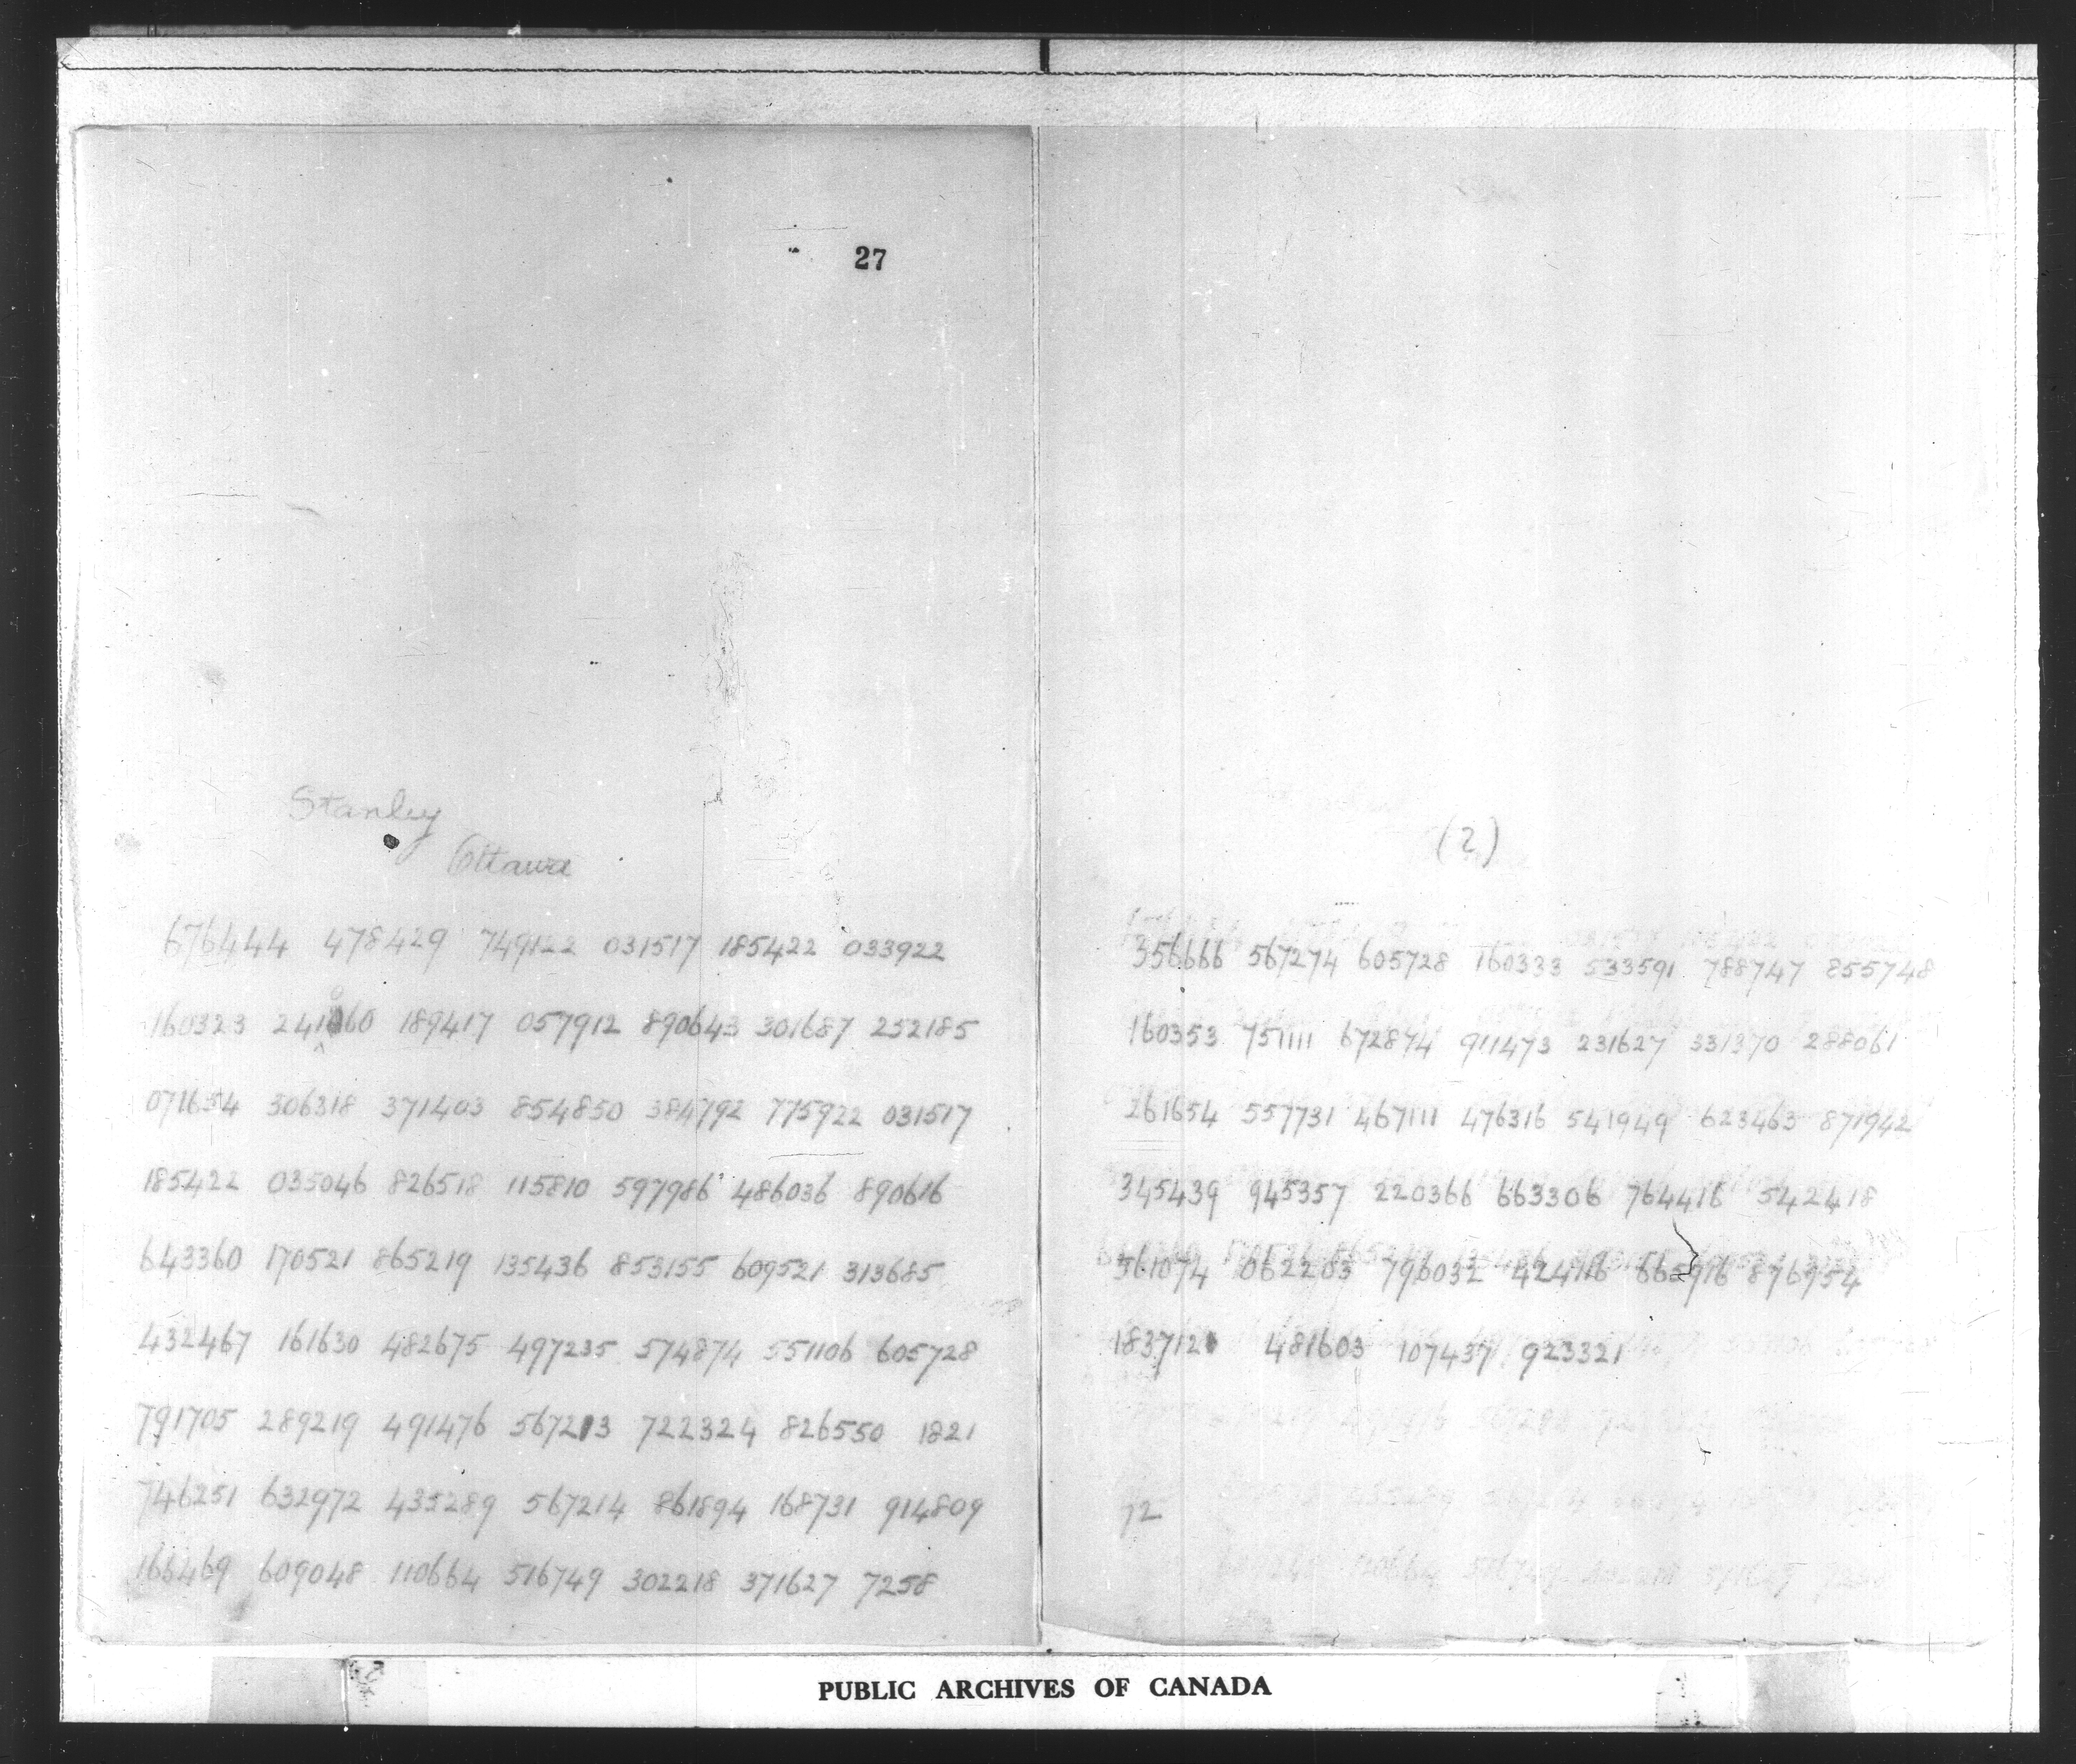 27
Stanley
Ottawa
676444 478429 749122 031517 185422 033922
160323 241060 189417 057912 890643 301687 252185
071654 306318 371403 854850 384792 775922 031517
185422 035046 826518 115810 597986 486036 890616
643360 170521 865219 135436 853155 609521 313685
432467 161630 482675 497235 574874 551106 605728
791705 289219 491476 567213 722324 826550 1821
746251 632972 435289 567214 861894 168731 914809
166469 609048 110664 516749 302218 371627 7258
(2)
356666 567274 605728 160333 533591 788747 855748
160353 751111 672874 911473 231627 331370 288061
261654 557731 467111 476316 541949 623463 871942
345439 945357 220366 663306 764416 542418
561074 062203 796032 424116 665916 876954
183712 481603 107437 923321
72
PUBLIC ARCHIVES OF CANADA